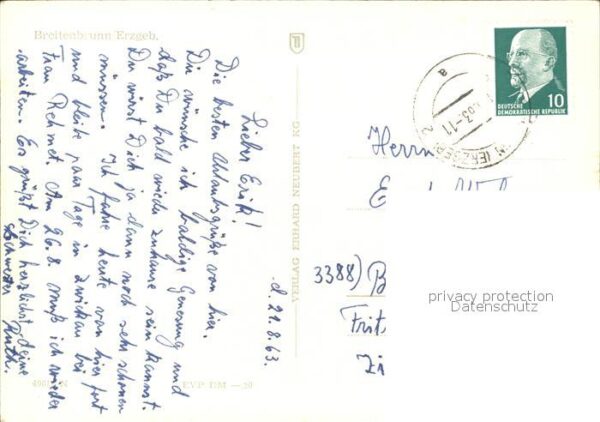 Breitenbrunn Erzgeb.
d. 21.8.63.
Lieber Erik!
Die besten Urlaubsgrüße von hier.
Dir wünsche ich baldige Genesung und
daß Du bald wieder zuhause sein kannst.
Du wirst Dich ja dann noch sehr schonen
müssen. Ich fahre heute von hier fort
und bleibe paar Tage in Zwickau bei
Frau Rehmet. Am 26.8. muß ich wieder
arbeiten. Es grüßt Dich herzlichst Deine
Schwester Ruth.
VERLAG ERHARD NEUBERT KG
EVP DM —
DEUTSCHE
DEMOKRATISCHE REPUBLIK
10
(ERZGEB) 2
63-11
a
Herrn
E
3388) B
Frit
Zi
privacy protection
Datenschutz